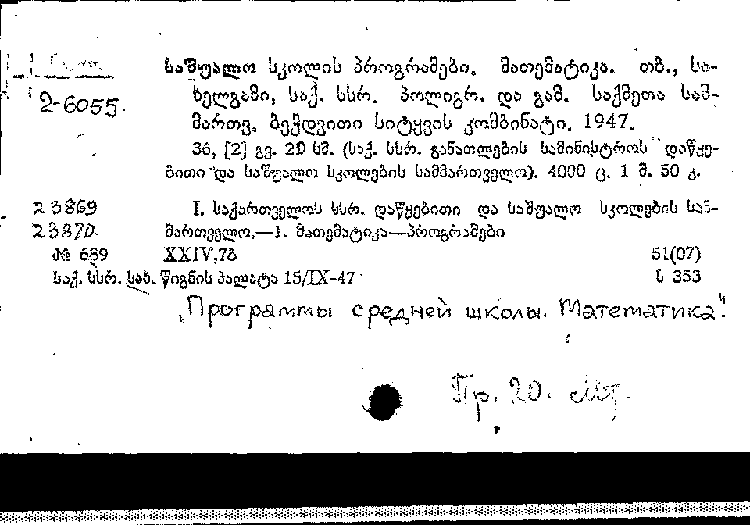 2-6055.
საშუალო სკოლის პროგრამები. მათემატიკა. თბ., სა-
ხელგამი, საქ. სსრ. პოლიგრ. და გამ. საქმეთა სამ-
მართვ. ბეჭდვითი სიტყვის კომბინატი. 1947.
36, [2] გვ. 20 სმ. (საქ. სსრ. განათლების სამინისტროს დაწყე-
ბითი და საშუალო სკოლების სამმართველო). 4000 ც. 1 მ. 50 კ.
23869 I. საქართველოს სსრ. დაწყებითი და საშუალო სკოლების სამ-
23870 მართველო,—1. მათემატიკა—პროგრამები
№ 689 XXIV,7ბ 51(07)
საქ. სსრ. სახ. წიგნის პალატა 15/IX-47 ს 353
„Программы средней школы. Математика".
Пр. 20.